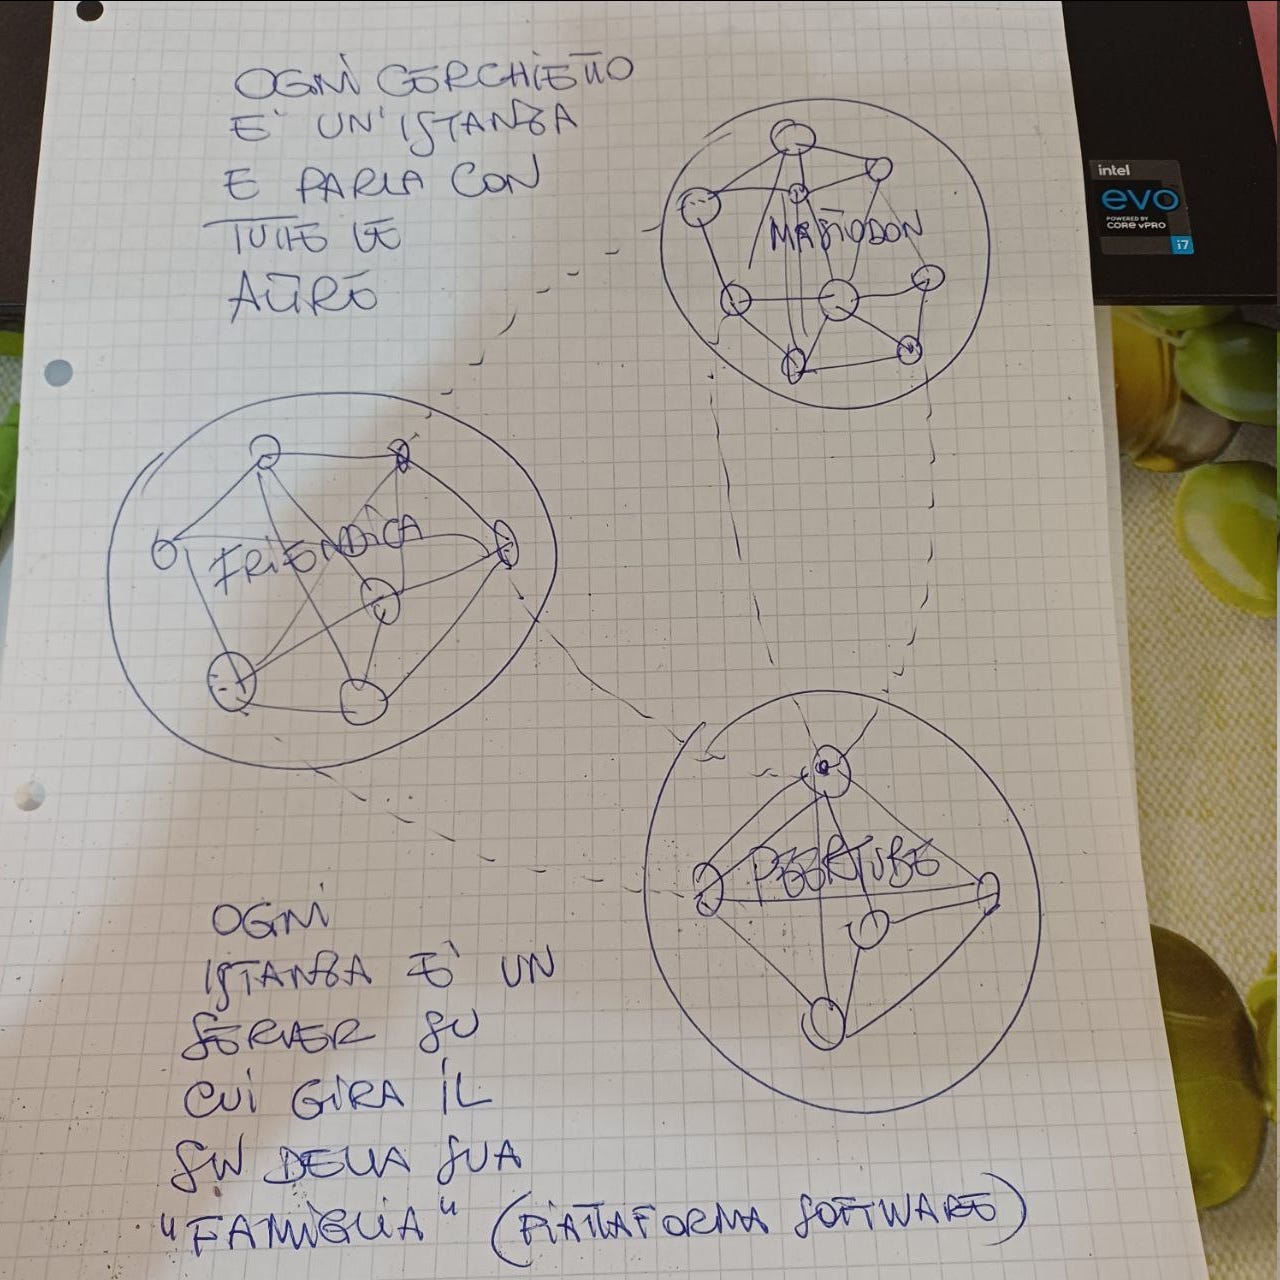 OGNI CERCHIETTO
E' UN'ISTANZA
E PARLA CON
TUTTE LE
ALTRE
MASTODON
intel
evo
POWERED BY
CORE vPRO
i7
FRIENDICA
PEERTUBE
OGNI
ISTANZA E' UN
SERVER SU
CUI GIRA IL
SW DELLA SUA
"FAMIGLIA" (PIATTAFORMA SOFTWARE)